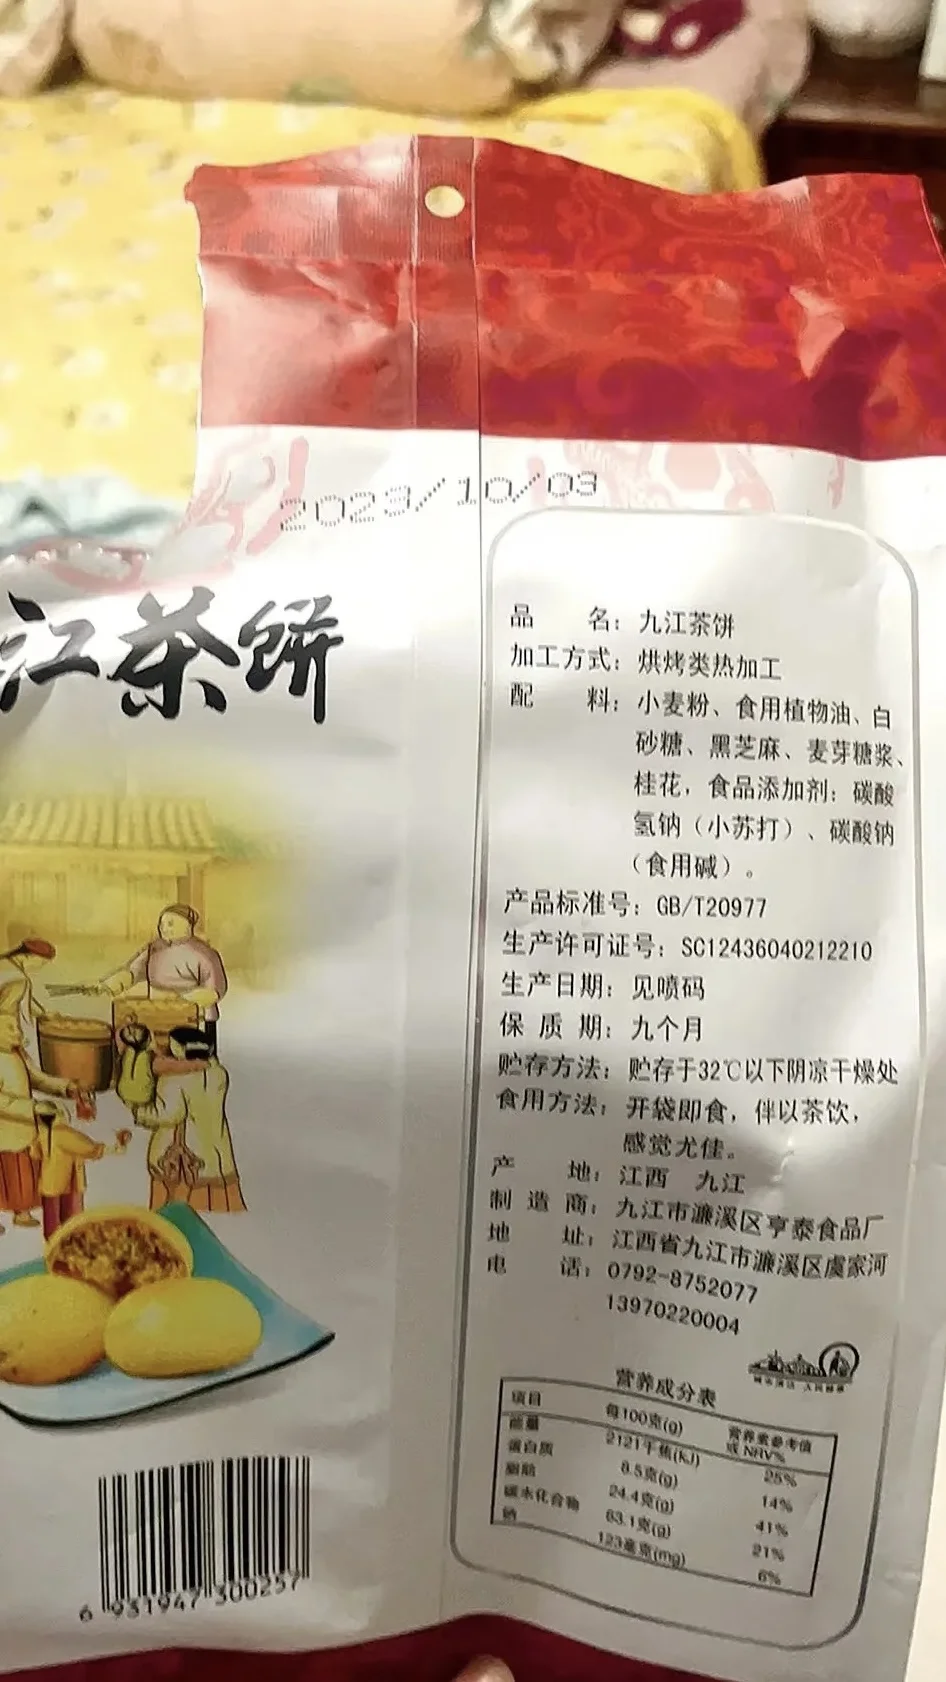 2023/10/03
江茶饼
品 名：九江茶饼
加工方式：烘烤类热加工
配 料：小麦粉、食用植物油、白
砂糖、黑芝麻、麦芽糖浆、
桂花，食品添加剂：碳酸
氢钠（小苏打）、碳酸钠
（食用碱）。
产品标准号：GB/T20977
生产许可证号：SC12436040212210
生产日期：见喷码
保 质 期：九个月
贮存方法：贮存于32℃以下阴凉干燥处
食用方法：开袋即食，伴以茶饮，
感觉尤佳。
产 地：江西 九江
制 造 商：九江市濂溪区亨泰食品厂
地 址：江西省九江市濂溪区虞家河
电 话：0792-8752077
13970220004
营养成分表
项目 每100克(g) 营养素参考值或NRV%
能量 2121千焦(kJ) 25%
蛋白质 8.5克(g) 14%
脂肪 24.4克(g) 41%
碳水化合物 63.1克(g) 21%
钠 123毫克(mg) 6%
6 931947 300257